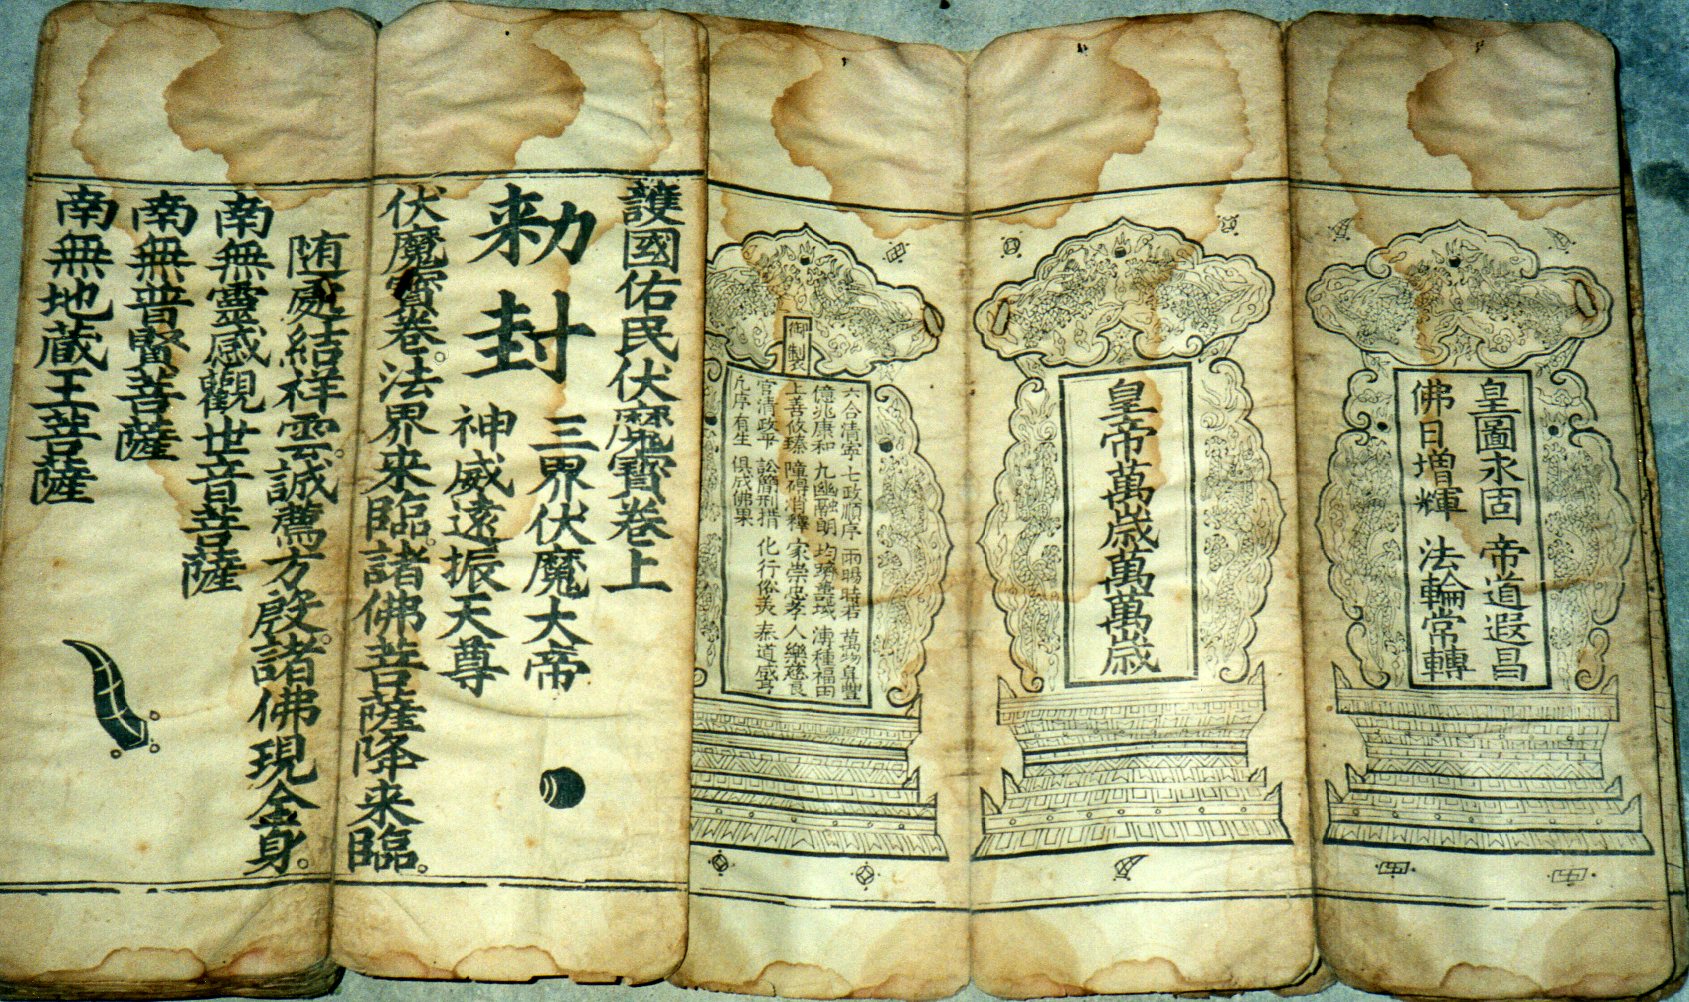 皇圖永固 帝道遐昌
佛日增輝 法輪常轉
皇帝萬歲萬萬歲
御製
六合清寧 七政順序 雨暘時若 萬物阜豐
億兆康和 九幽融朗 均躋壽域 溥種福田
上善攸臻 障碍消釋 家崇忠孝 人樂慈良
官清政平 訟簡刑措 化行俗美 泰道咸亨
凡序有生 俱成佛果
護國佑民伏魔寳卷上
勑封
三界伏魔大帝
神威遠振天尊
伏魔寳卷。法界来臨。諸佛菩薩降来臨。
随處結祥雲。誠薦方殷。諸佛現金身。
南無靈感觀世音菩薩
南無普賢菩薩
南無地蔵王菩薩